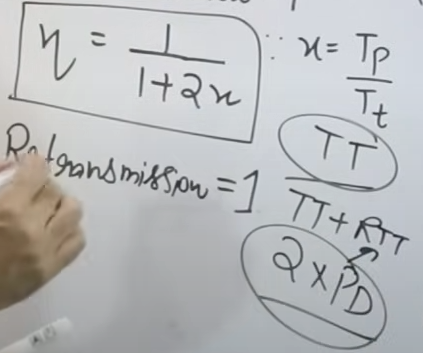 η = 1 / 1+2x ∵ x = Tp / Tt
Retransmission = 1
TT / TT + RTT
2 x PD